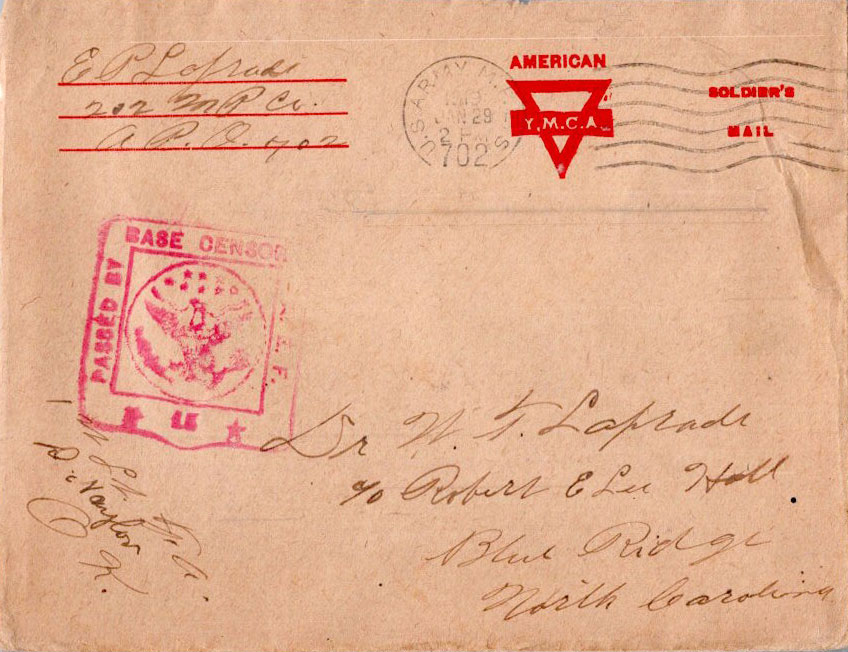 E P Laprade
202 M P Co.
A. P. O. 702
U.S. ARMY M.P.
JAN 29
2 PM
702
AMERICAN
Y.M.C.A.
SOLDIER'S
MAIL
PASSED BY
BASE CENSOR
A. E. F.
Dr W. T. Laprade
c/o Robert E Lee Hall
Blue Ridge
North Carolina